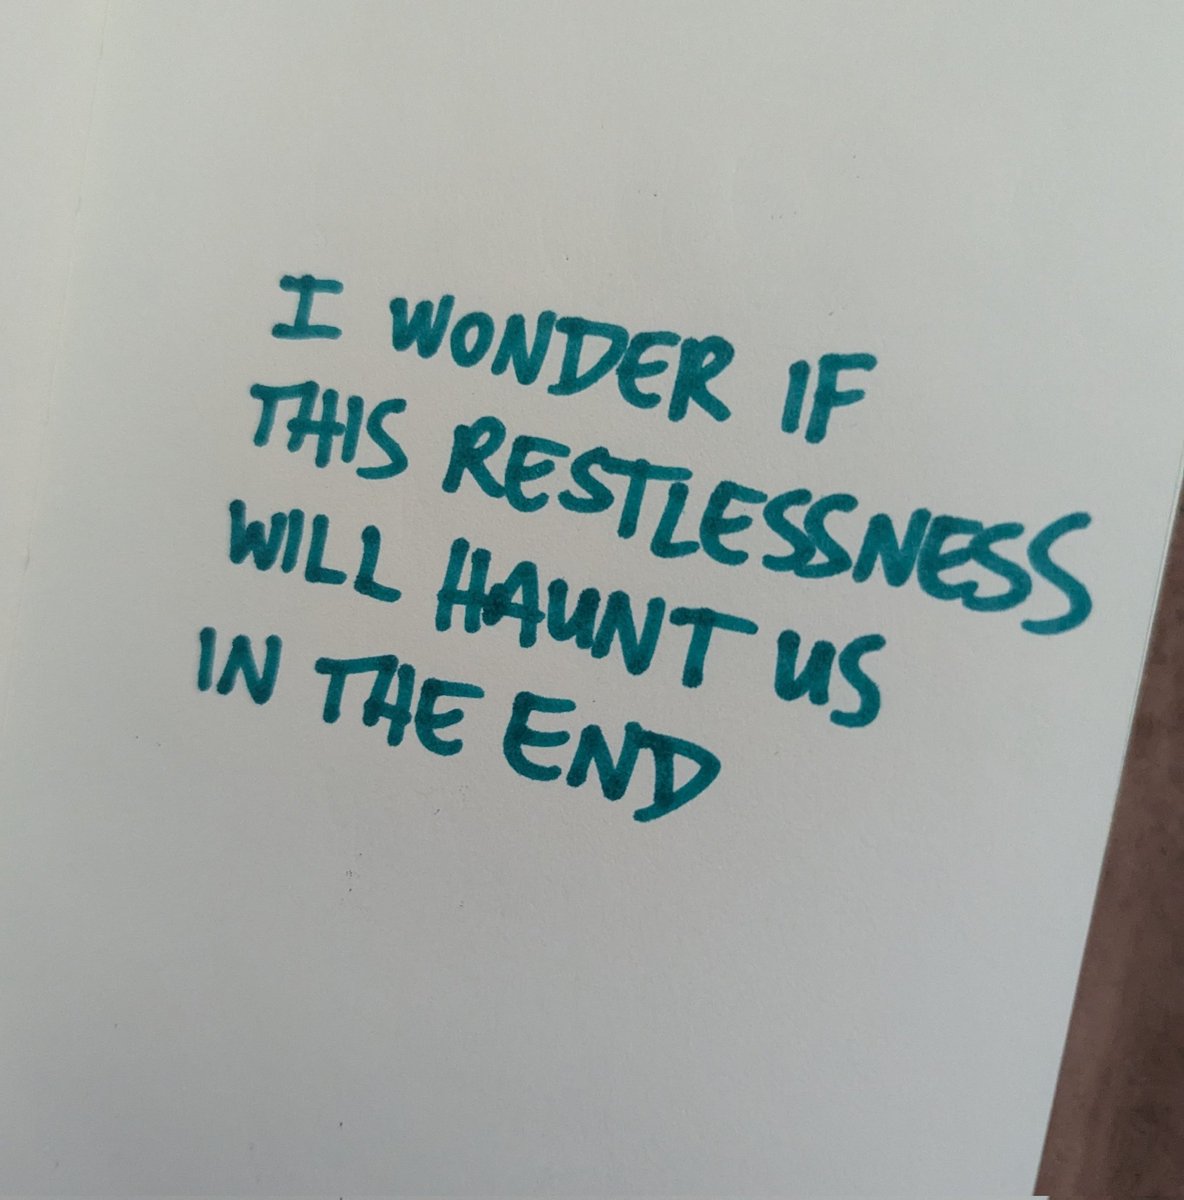 I WONDER IF
THIS RESTLESSNESS
WILL HAUNT US
IN THE END